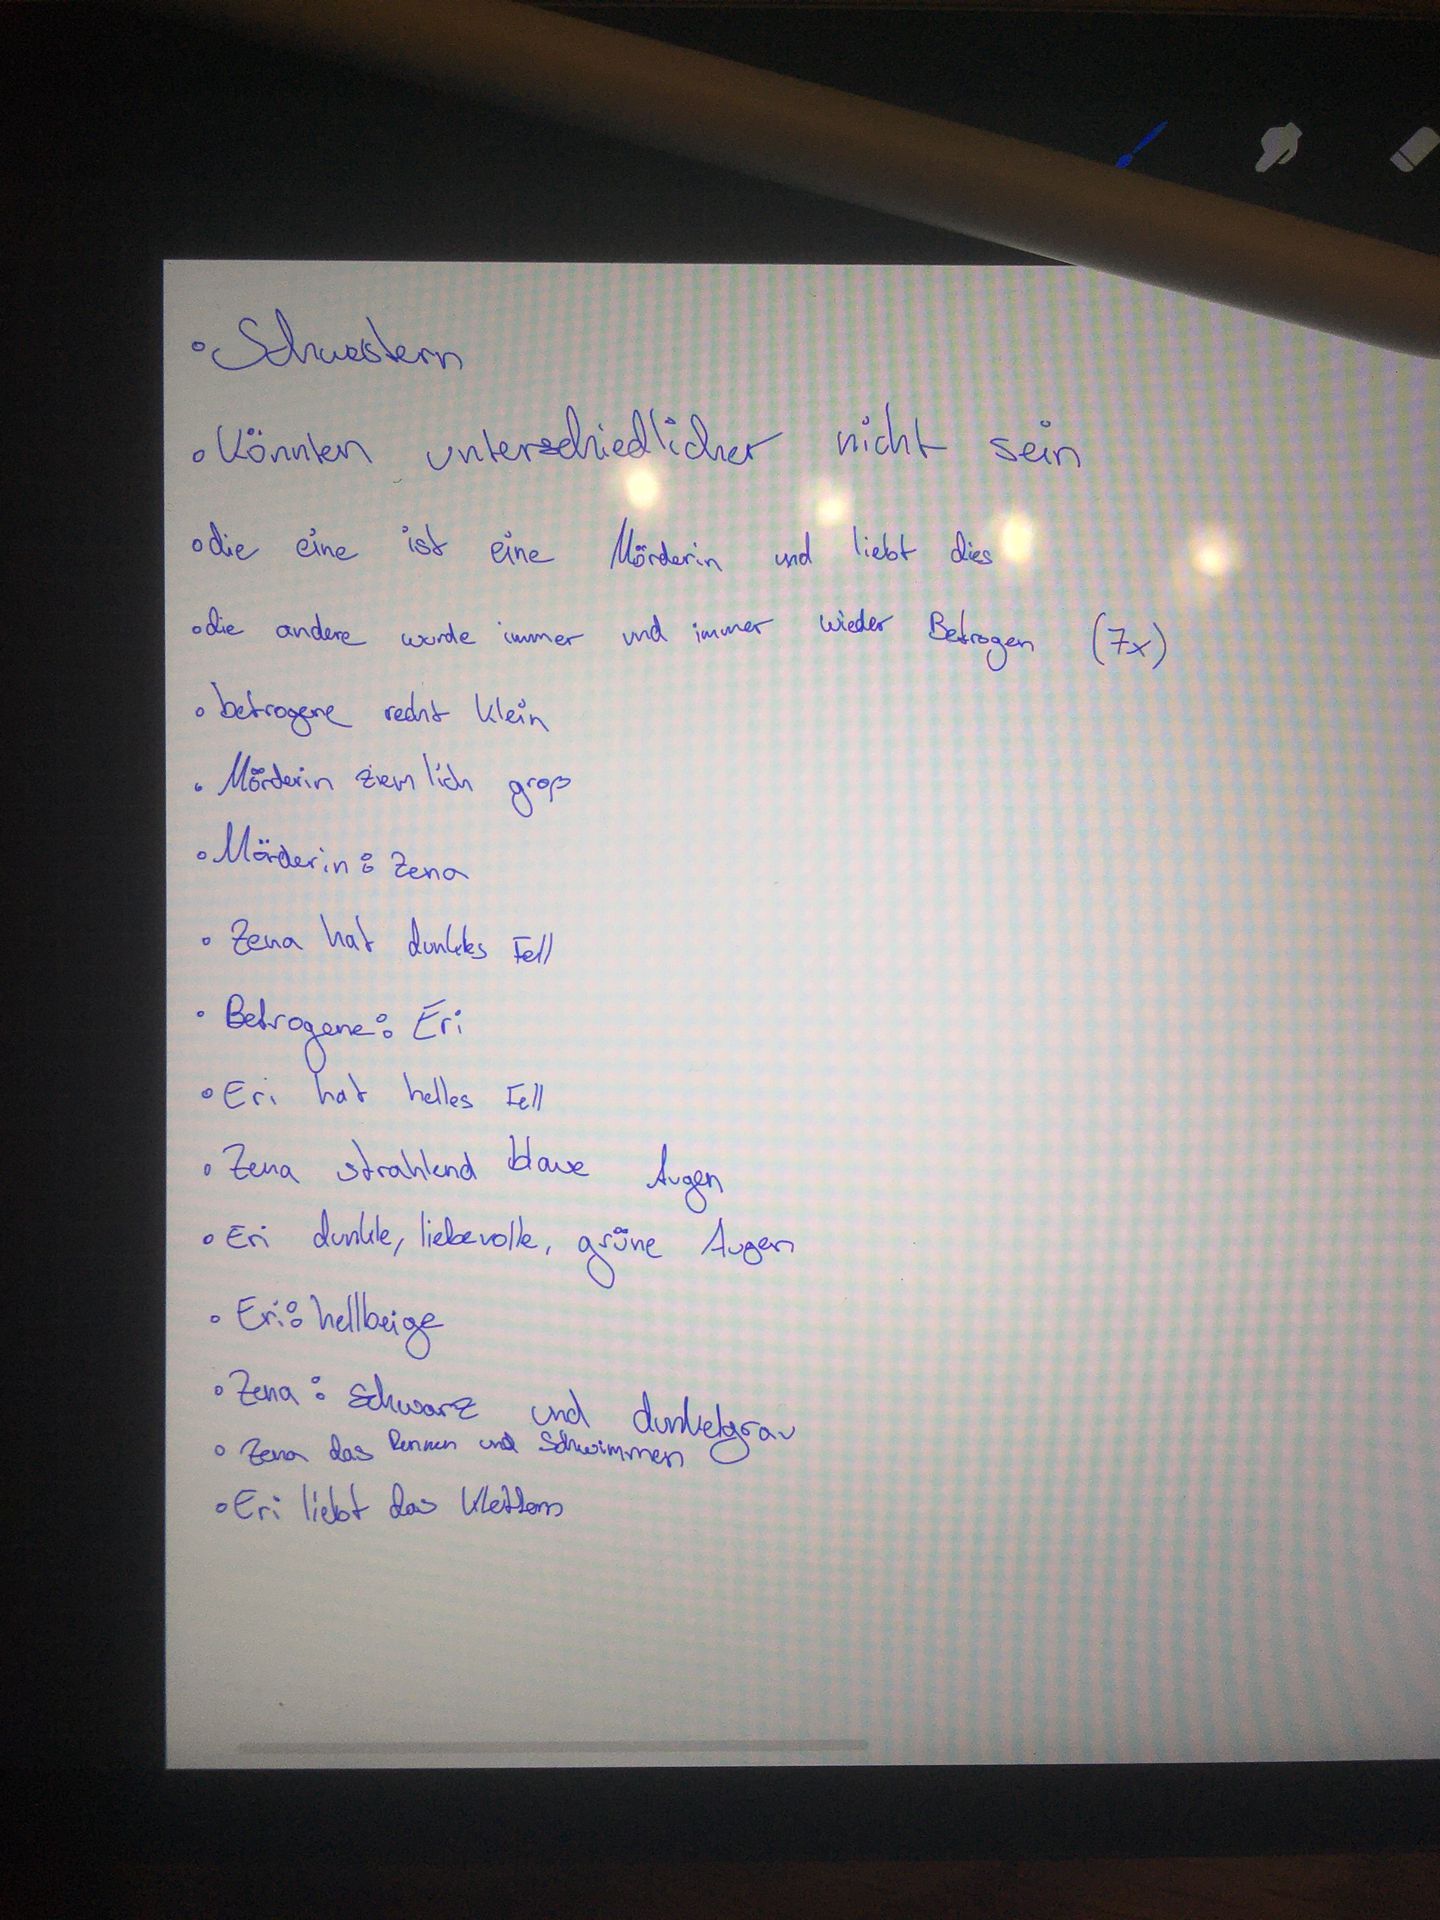 • Schwestern
• Könnten unterschiedlicher nicht sein
• die eine ist eine Mörderin und liebt dies
• die andere wurde immer und immer wieder Betrogen (7x)
• betrogene recht klein
• Mörderin ziemlich groß
• Mörderin: Zena
• Zena hat dunkles Fell
• Betrogene: Eri
• Eri hat helles Fell
• Zena strahlend blaue Augen
• Eri dunkle, liebevolle, grüne Augen
• Eri: hellbeige
• Zena: schwarz und dunkelgrau
• Zena das Rennen und Schwimmen
• Eri liebt das Klettern